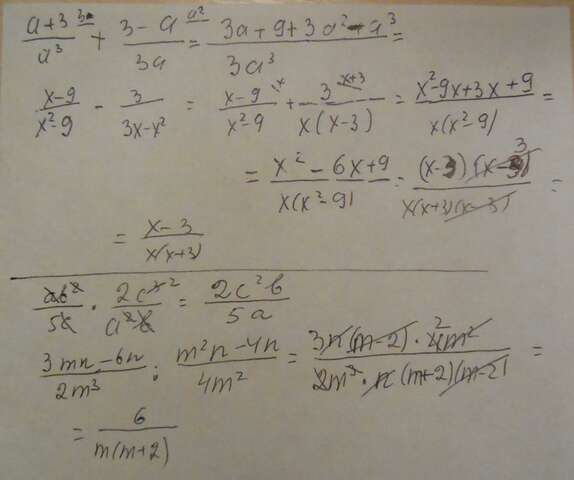 (a+3)/a³ ^3 + (3-a)/3a ^a² = (3a+9+3a²-a³)/3a³ =
(x-9)/(x²-9) - 3/(3x-x²) = (x-9)/(x²-9) ^x + 3/(x(x-3)) ^x+3 = (x²-9x+3x+9)/(x(x²-9)) =
= (x²-6x+9)/(x(x²-9)) = (x-3)(x-3)/(x(x+3)(x-3)) =
= (x-3)/(x(x+3))
ab²/5a · 2c²/(a²b) = 2c²b/5a
(3mn-6n)/2m³ : (m²n-4n)/4m² = (3n(m-2)·4m²)/(2m³·n(m+2)(m-2)) =
= 6/(m(m+2))